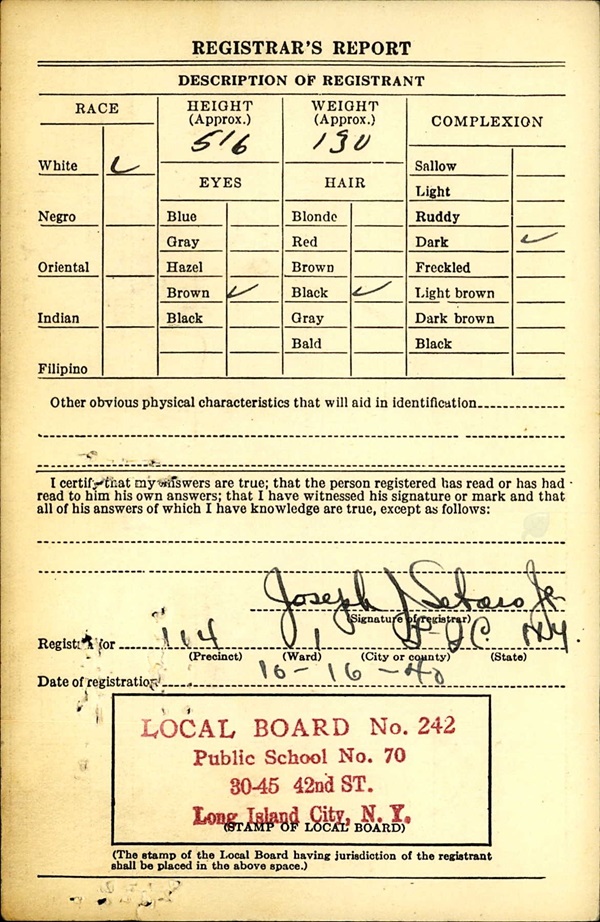 REGISTRAR'S REPORT
DESCRIPTION OF REGISTRANT
RACE
White ✓
Negro
Oriental
Indian
Filipino
HEIGHT
(Approx.)
5 1 6
WEIGHT
(Approx.)
130
EYES
Blue
Gray
Hazel
Brown ✓
Black
HAIR
Blonde
Red
Brown
Black ✓
Gray
Bald
COMPLEXION
Sallow
Light
Ruddy
Dark ✓
Freckled
Light brown
Dark brown
Black
Other obvious physical characteristics that will aid in identification
I certify that my answers are true; that the person registered has read or has had
read to him his own answers; that I have witnessed his signature or mark and that
all of his answers of which I have knowledge are true, except as follows:
Joseph J Setaro Jr
(Signature of registrar)
Registrar for 114 1 N.Y.
(Precinct) (Ward) (City or county) (State)
Date of registration 10-16-40
LOCAL BOARD No. 242
Public School No. 70
30-45 42nd ST.
Long Island City, N. Y.
(STAMP OF LOCAL BOARD)
(The stamp of the Local Board having jurisdiction of the registrant
shall be placed in the above space.)